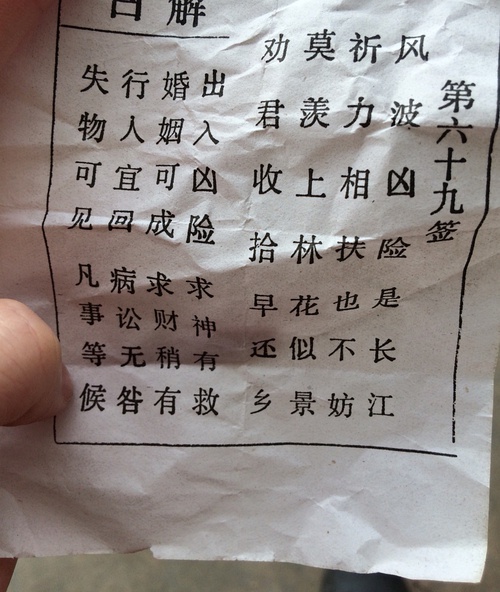 第六十九签
风波凶险是长江
祈力相扶也不妨
莫羡上林花似景
劝君收拾早还乡
解曰
出入凶险 求神有救
婚姻可成 求财稍有
行人宜回 病讼无咎
失物可见 凡事等候